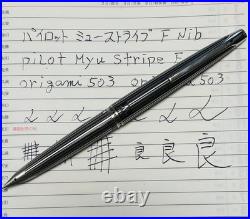 パイロット ミューストライプ F Nib
Pilot Myu Stripe F
origami 503 or 503
良 良 良